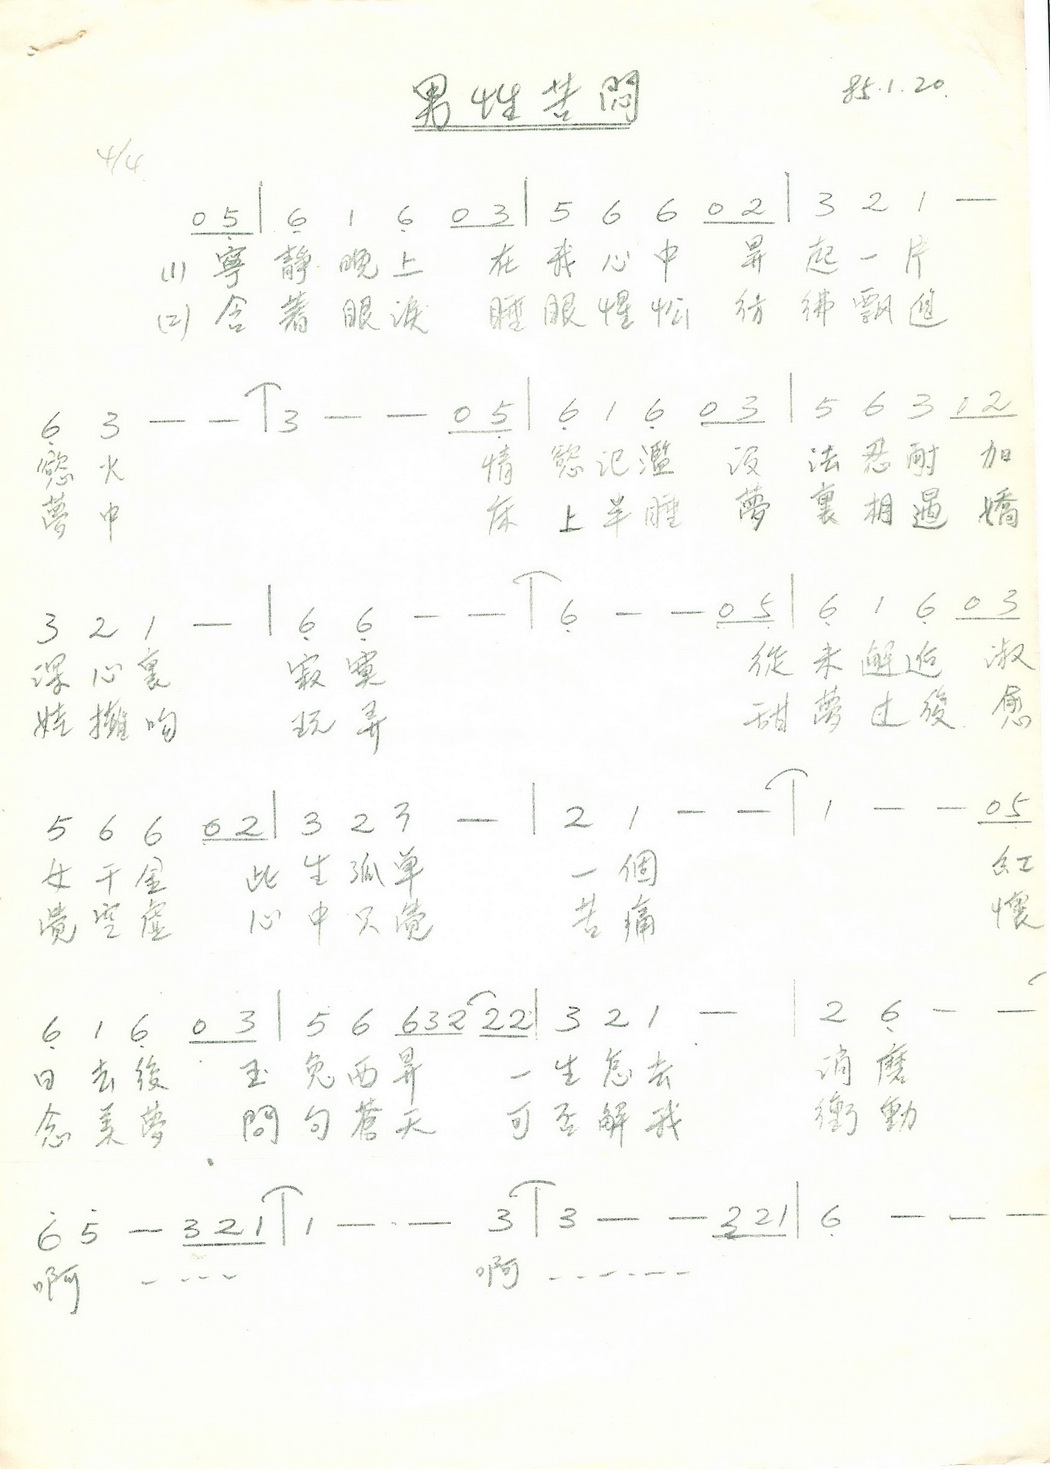 男性苦悶 85.1.20.
4/4
0 5 | 6 1 6 0 3 | 5 6 6 0 2 | 3 2 1 —
(1) 寧靜晚上 在我心中 昇起一片
(2) 含著眼淚 睡眼惺忪 彷彿飄進
6 3 — — | 3 — — 0 5 | 6 1 6 0 3 | 5 6 3 1 2
慾火 情慾氾濫 没法忍耐 加
夢中 床上半睡 夢裏相遇 嬌
3 2 1 — | 6 6 — — | 6 — — 0 5 | 6 1 6 0 3
深心裏 寂寞 從未邂逅 淑
娃擁吻 玩弄 甜夢过後 愈
5 6 6 0 2 | 3 2 3 — | 2 1 — — | 1 — — 0 5
女千金 此生孤单 一個 紅
覺空虛 心中只覺 苦痛 懷
6 1 6 0 3 | 5 6 6 3 2 2 2 | 3 2 1 — | 2 6 — —
日去後 玉兔西昇 一生怎去 消磨
念美夢 問句蒼天 可否解我 衝動
6 5 — 3 2 1 | 1 — — 3 | 3 — — 3 2 1 | 6 — — —
啊 - - - - 啊 - - - - - -